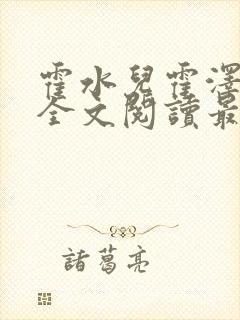 霍水兒霍澤
全文閱讀最
諸葛亮